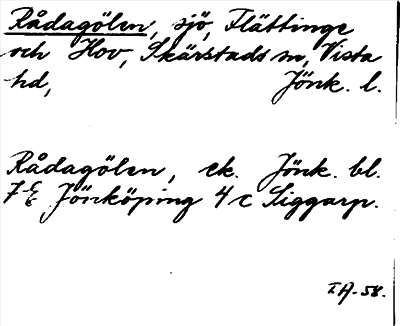 Rådagölen, sjö, Flättinge
och Hov, Skärstads sn, Vista
hd, Jönk. l.
Rådagölen, ek. Jönk. bl.
7 E Jönköping 4 c Siggarp.
IA-58.